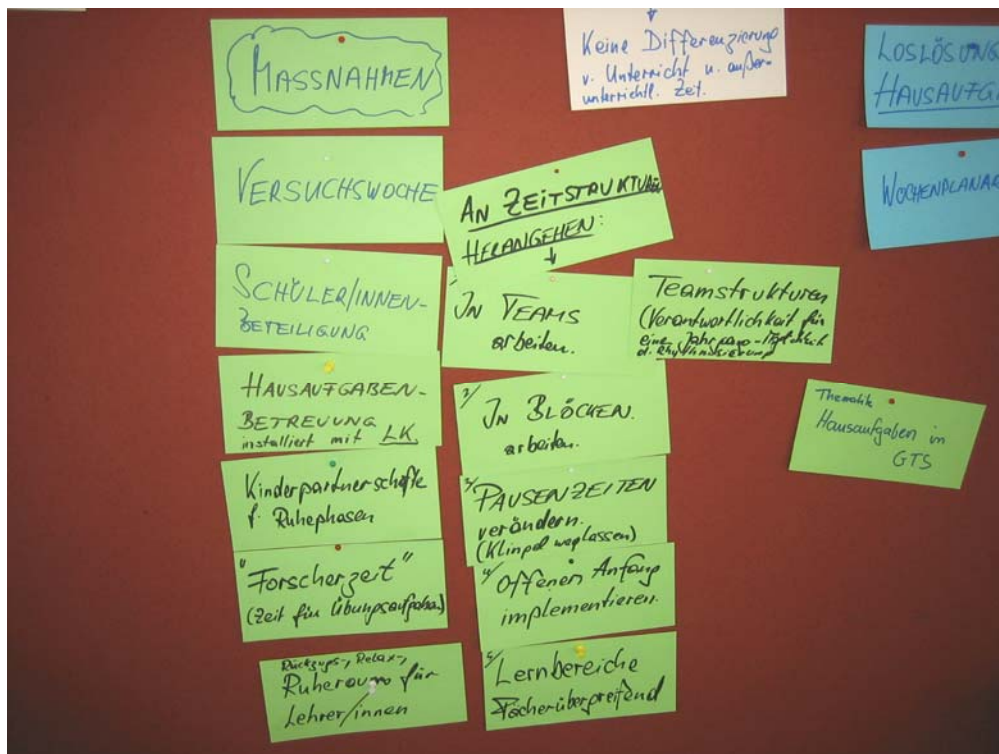 MASSNAHMEN
VERSUCHSWOCHE
SCHÜLER/INNEN-
BETEILIGUNG
HAUSAUFGABEN-
BETREUUNG
installiert mit LK.
Kinderpartnerschafte
f. Ruhephasen
"Forscherzeit"
(Zeit für Übungsaufgaben)
Rückzugs-, Relax-,
Ruheraum für
Lehrer/innen
Keine Differenzierung
v. Unterricht u. außer-
unterrichtl. Zeit.
AN ZEITSTRUKTUREN
HERANGEHEN:
IN TEAMS
arbeiten.
2/ IN BLÖCKEN.
arbeiten.
3/ PAUSENZEITEN
verändern.
(Klingel weglassen)
4/ Offenen Anfang
implementieren.
5/ Lernbereiche
Fächerübergreifend
Teamstrukturen
(Verantwortlichkeit für
einen Jahrgang - Möglichkeit
d. Rhythmisierung
Thematik
Hausaufgaben in
GTS
LOSLÖSUNG
HAUSAUFGA
WOCHENPLANAR